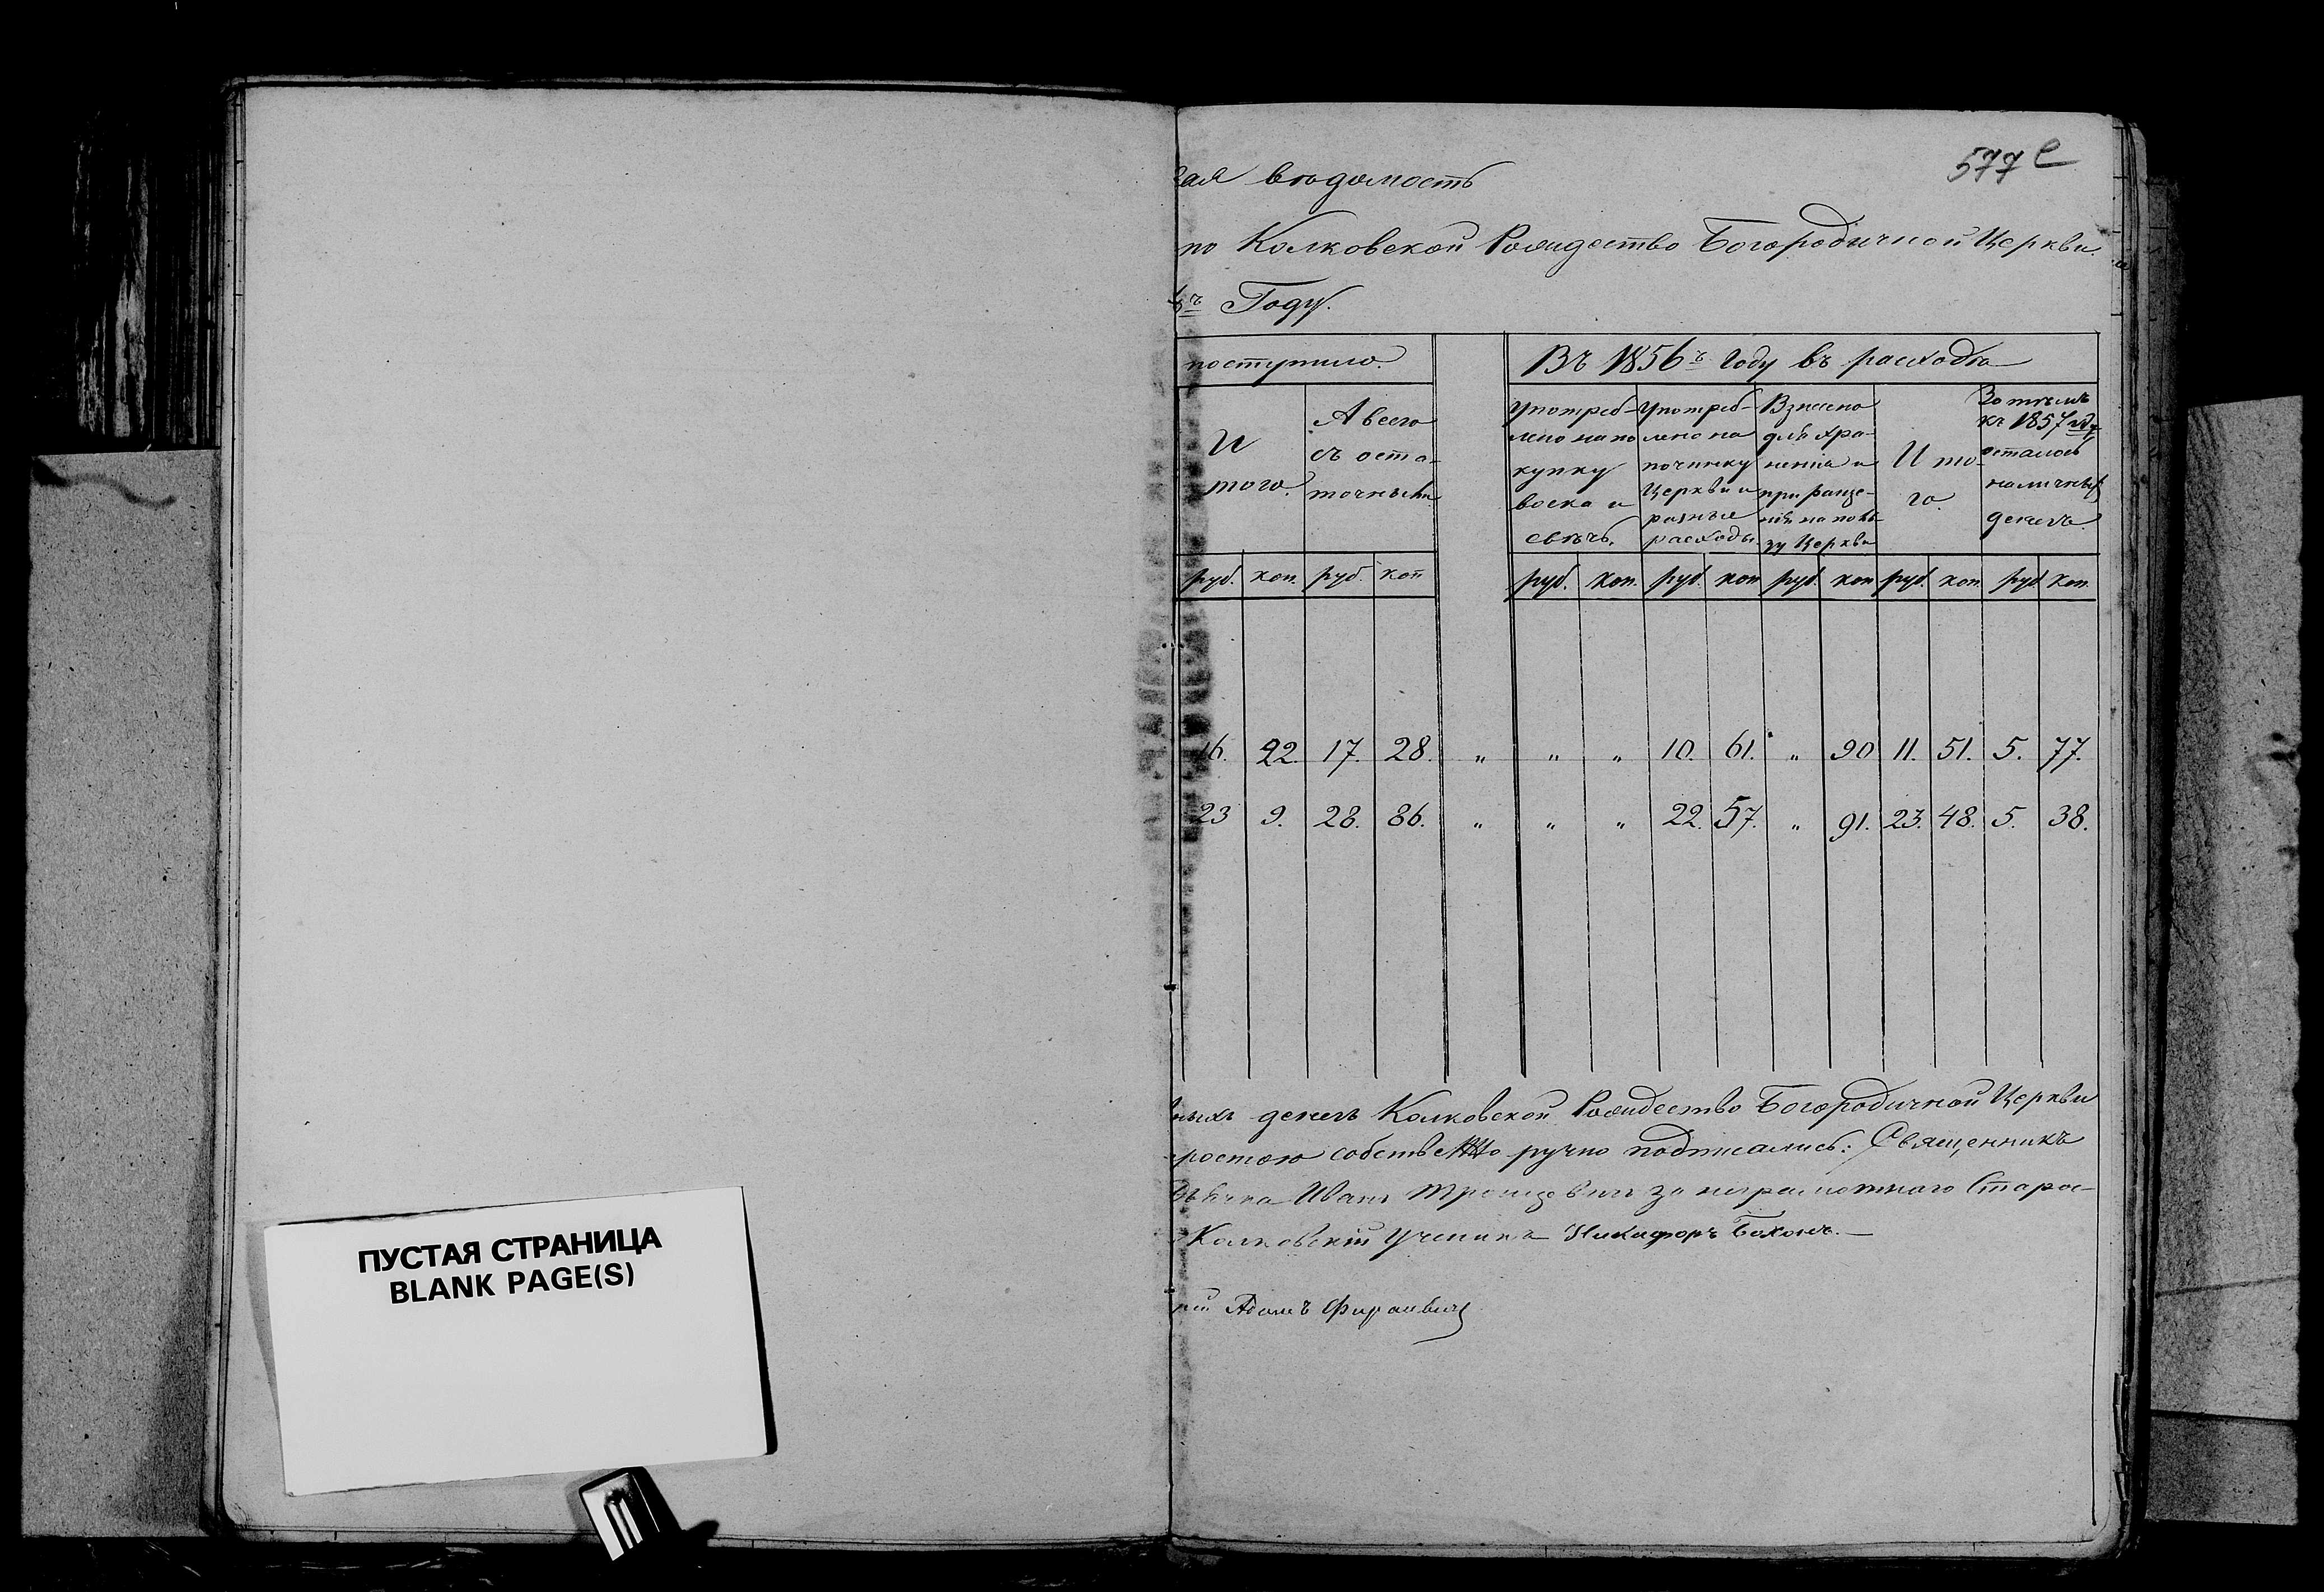 577 е
ая вѣдомость
по Колковской Рождество Богородичной Церкви.
Году.
поступило.
Въ 1856ъ Году въ расходѣ
И
того.
А всего
съ оста-
точными
Употреб-
лено на по
купку
воска и
свѣчъ.
Употреб-
лено на
починку
Церкви и
разные
расходы.
Взнесено
для хра-
ненія и
приращe-
нія на поль-
зу Церкви
И то-
го.
За тѣмъ
къ 1857 году
осталось
наличныхъ
денегъ.
руб. коп. руб. коп руб. коп. руб. коп руб. коп руб. коп. руб коп.
16. 22. 17. 28. " " " 10. 61. " 90 11. 51. 5. 77.
23 9. 28. 86. " " " 22. 57. " 91. 23. 48. 5. 38.
ныхъ денегъ Колковской Рождество Богородичной Церкви
ростою собственно ручно подписались: Священникъ
Иванъ за неграмотнаго Старос-
Колковскій Ученикъ Никифоръ Бохонъ.—
рій Адамъ
ПУСТАЯ СТРАНИЦА
BLANK PAGE(S)